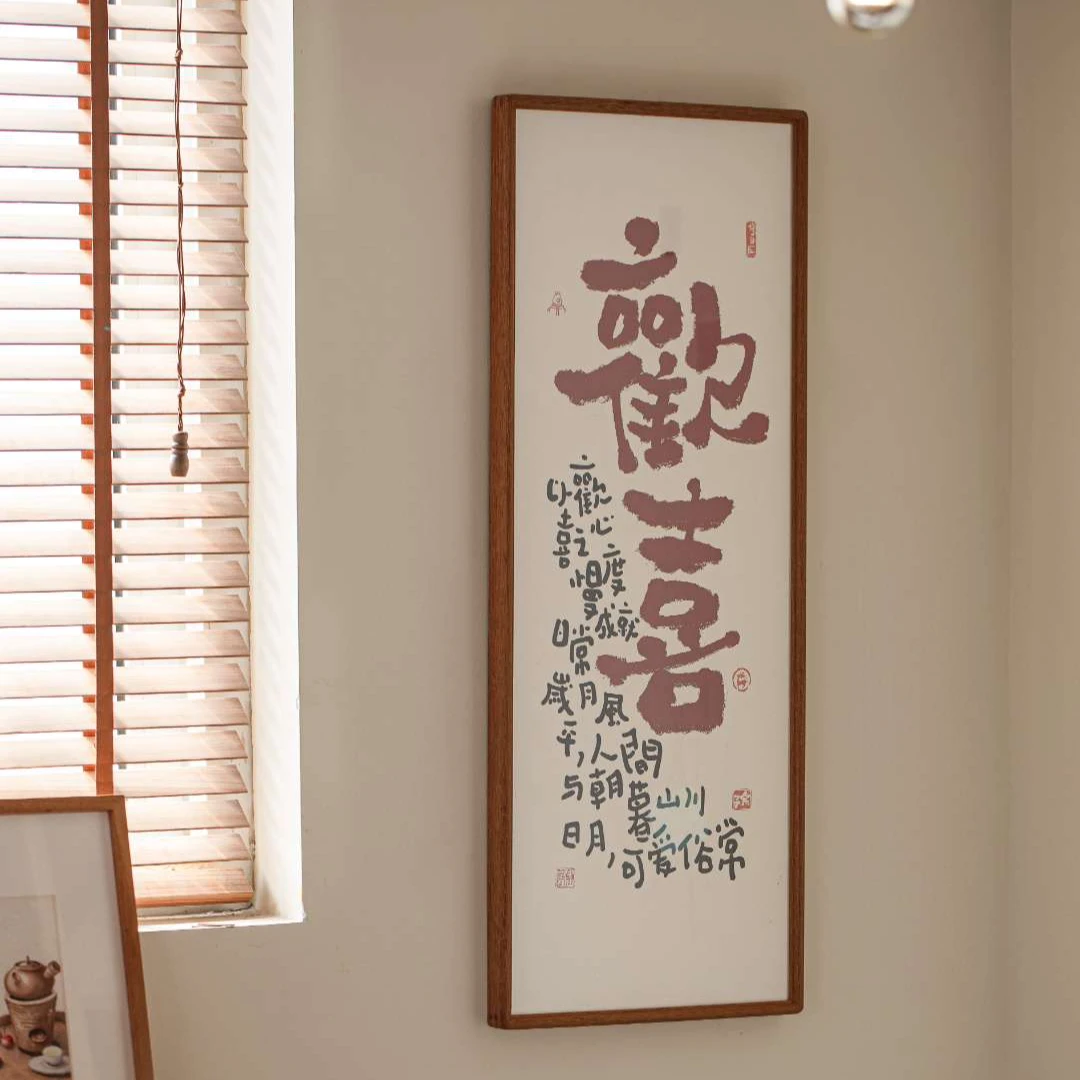 歡喜
以歡
喜之心
慢度
日常成就
歲月風
平,人間
与朝暮山川
日月,可爱俗常